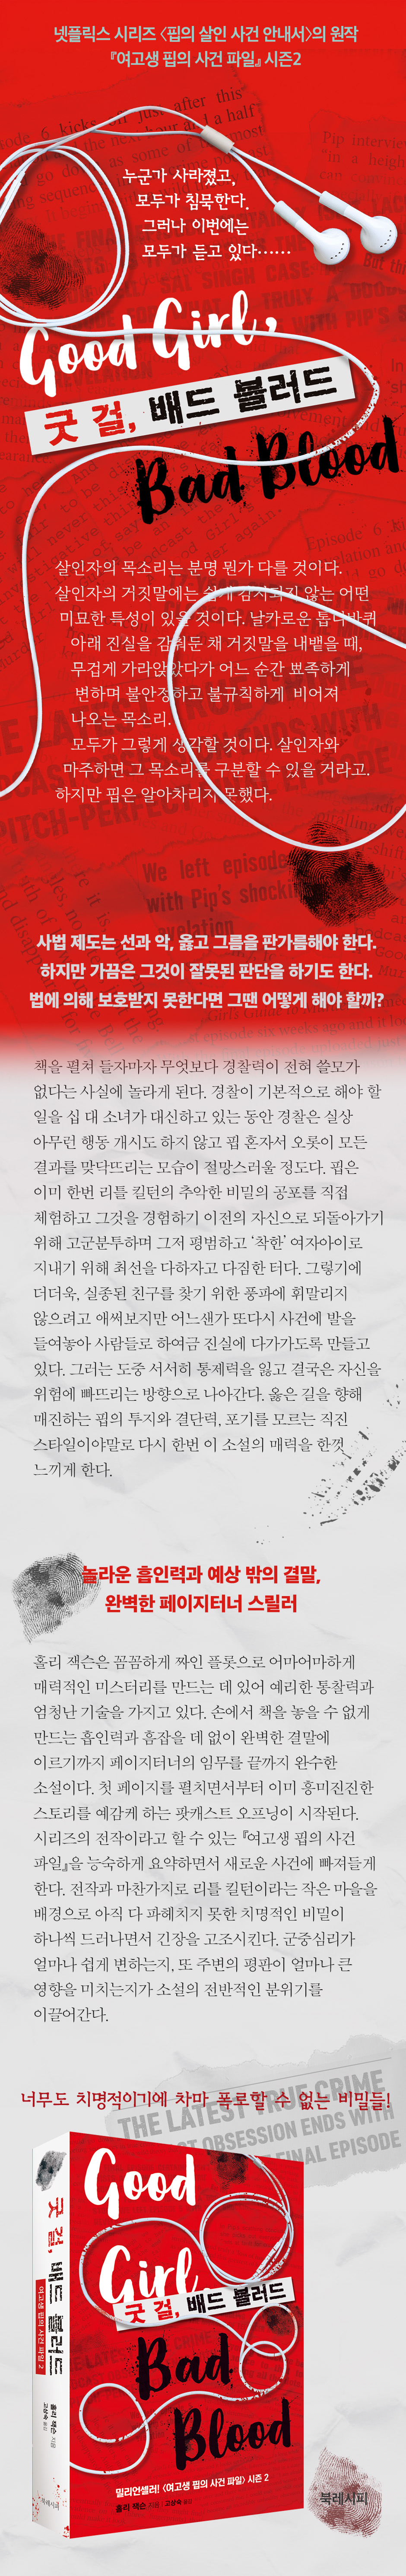 넷플릭스 시리즈 〈핍의 살인 사건 안내서〉의 원작
『여고생 핍의 사건 파일』 시즌2
누군가 사라졌고,
모두가 침묵한다.
그러나 이번에는
모두가 듣고 있다……
Good Girl,
굿 걸, 배드 블러드
Bad Blood
살인자의 목소리는 분명 뭔가 다를 것이다.
살인자의 거짓말에는 쉽게 감지되지 않는 어떤
미묘한 특성이 있을 것이다. 날카로운 톱니바퀴
아래 진실을 감춰둔 채 거짓말을 내뱉을 때,
무겁게 가라앉았다가 어느 순간 뾰족하게
변하며 불안정하고 불규칙하게 비어져
나오는 목소리.
모두가 그렇게 생각할 것이다. 살인자와
마주하면 그 목소리를 구분할 수 있을 거라고.
하지만 핍은 알아차리지 못했다.
We left episode
with Pip's shocking
revelation
사법 제도는 선과 악, 옳고 그름을 판가름해야 한다.
하지만 가끔은 그것이 잘못된 판단을 하기도 한다.
법에 의해 보호받지 못한다면 그땐 어떻게 해야 할까?
책을 펼쳐 들자마자 무엇보다 경찰력이 전혀 쓸모가
없다는 사실에 놀라게 된다. 경찰이 기본적으로 해야 할
일을 십 대 소녀가 대신하고 있는 동안 경찰은 실상
아무런 행동 개시도 하지 않고 핍 혼자서 오롯이 모든
결과를 맞닥뜨리는 모습이 절망스러울 정도다. 핍은
이미 한번 리틀 킬턴의 추악한 비밀의 공포를 직접
체험하고 그것을 경험하기 이전의 자신으로 되돌아가기
위해 고군분투하며 그저 평범하고 ‘착한’ 여자아이로
지내기 위해 최선을 다하자고 다짐한 터다. 그렇기에
더더욱, 실종된 친구를 찾기 위한 풍파에 휘말리지
않으려고 애써보지만 어느샌가 또다시 사건에 발을
들여놓아 사람들로 하여금 진실에 다가가도록 만들고
있다. 그러는 도중 서서히 통제력을 잃고 결국은 자신을
위험에 빠뜨리는 방향으로 나아간다. 옳은 길을 향해
매진하는 핍의 투지와 결단력, 포기를 모르는 직진
스타일이야말로 다시 한번 이 소설의 매력을 한껏
느끼게 한다.
놀라운 흡인력과 예상 밖의 결말,
완벽한 페이지터너 스릴러
홀리 잭슨은 꼼꼼하게 짜인 플롯으로 어마어마하게
매력적인 미스터리를 만드는 데 있어 예리한 통찰력과
엄청난 기술을 가지고 있다. 손에서 책을 놓을 수 없게
만드는 흡인력과 흠잡을 데 없이 완벽한 결말에
이르기까지 페이지터너의 임무를 끝까지 완수한
소설이다. 첫 페이지를 펼치면서부터 이미 흥미진진한
스토리를 예감케 하는 팟캐스트 오프닝이 시작된다.
시리즈의 전작이라고 할 수 있는 『여고생 핍의 사건
파일』을 능숙하게 요약하면서 새로운 사건에 빠져들게
한다. 전작과 마찬가지로 리틀 킬턴이라는 작은 마을을
배경으로 아직 다 파헤치지 못한 치명적인 비밀이
하나씩 드러나면서 긴장을 고조시킨다. 군중심리가
얼마나 쉽게 변하는지, 또 주변의 평판이 얼마나 큰
영향을 미치는지가 소설의 전반적인 분위기를
이끌어간다.
너무도 치명적이기에 차마 폭로할 수 없는 비밀들!
THE LATEST TRUE CRIME
OBSESSION ENDS WITH
FINAL EPISODE
Good
Girl,
굿 걸, 배드 블러드
Bad
Blood
밀리언셀러! 〈여고생 핍의 사건 파일〉 시즌 2
홀리 잭슨 지음 | 고상숙 옮김
굿 걸, 배드 블러드
여고생 핍의 사건 파일 2
홀리 잭슨 지음
고상숙 옮김
북레시피
북레시피